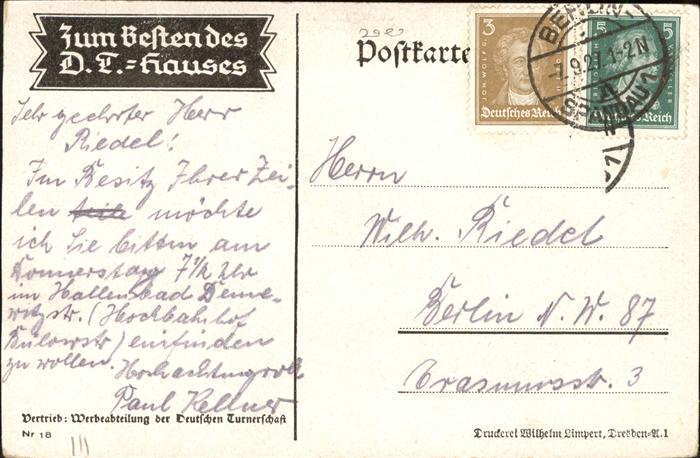 Zum Besten des
D. T.=Hauses
Postkarte
3
JOH. WOLFG.
Deutsches Reich
5
5
Reich
BERLIN
-7.9.27. 1-2N
SPANDAU 1
Sehr geehrter Herr
Riedel!
Im Besitz Ihrer Zei-
len teile möchte
ich Sie bitten am
Donnerstag 7½ Uhr
im Hallenbad Denne-
witzstr. (Hochbahnhof
Bülowstr) einfinden
zu wollen. Hochachtungsvoll
Paul Kellner
Herrn
Wilh. Riedel
Berlin N. W. 87
Erasmusstr. 3
Vertrieb: Werbeabteilung der Deutschen Turnerschaft
Nr 18
Druckerei Wilhelm Limpert, Dresden-A.1